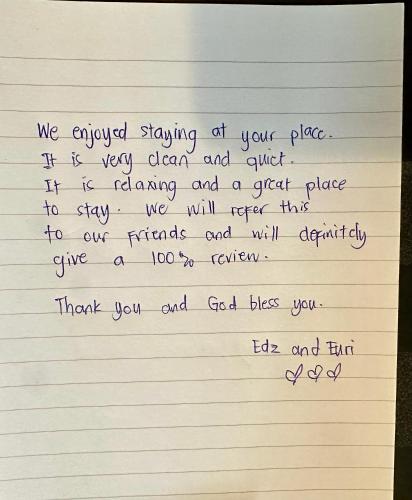 We enjoyed staying at your place.
It is very clean and quiet.
It is relaxing and a great place
to stay. We will refer this
to our friends and will definitely
give a 100% review.
Thank you and God bless you.
Edz and Euri
♡♡♡